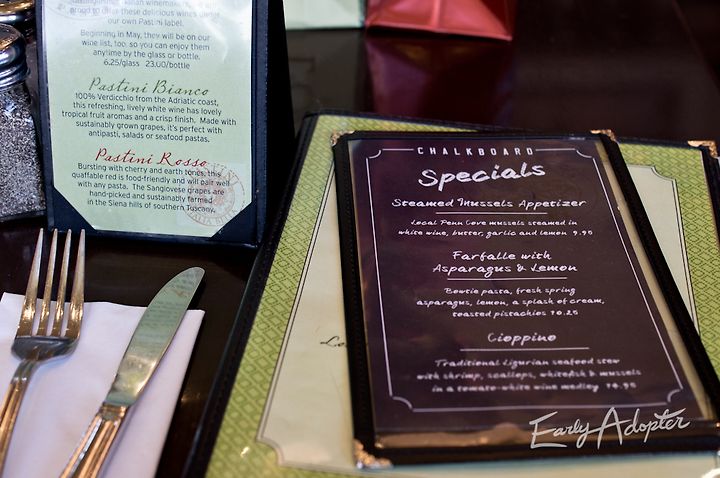 proud to offer these delicious wines under
our own Pastini label.
Beginning in May, they will be on our
wine list, too, so you can enjoy them
anytime by the glass or bottle.
6.25/glass 23.00/bottle
Pastini Bianco
100% Verdicchio from the Adriatic coast,
this refreshing, lively white wine has lovely
tropical fruit aromas and a crisp finish. Made with
sustainably grown grapes, it's perfect with
antipasti, salads or seafood pastas.
Pastini Rosso
Bursting with cherry and earth tones, this
quaffable red is food-friendly and will pair well
with any pasta. The Sangiovese grapes are
hand-picked and sustainably farmed
in the Siena hills of southern Tuscany.
CHALKBOARD
Specials
Steamed Mussels Appetizer
Local Penn Cove mussels steamed in
white wine, butter, garlic and lemon 9.95
Farfalle with
Asparagus & Lemon
Bowtie pasta, fresh spring
asparagus, lemon, a splash of cream,
toasted pistachios 10.25
Cioppino
Traditional Ligurian seafood stew
with shrimp, scallops, whitefish & mussels
in a tomato-white wine medley 14.95
Early Adopter